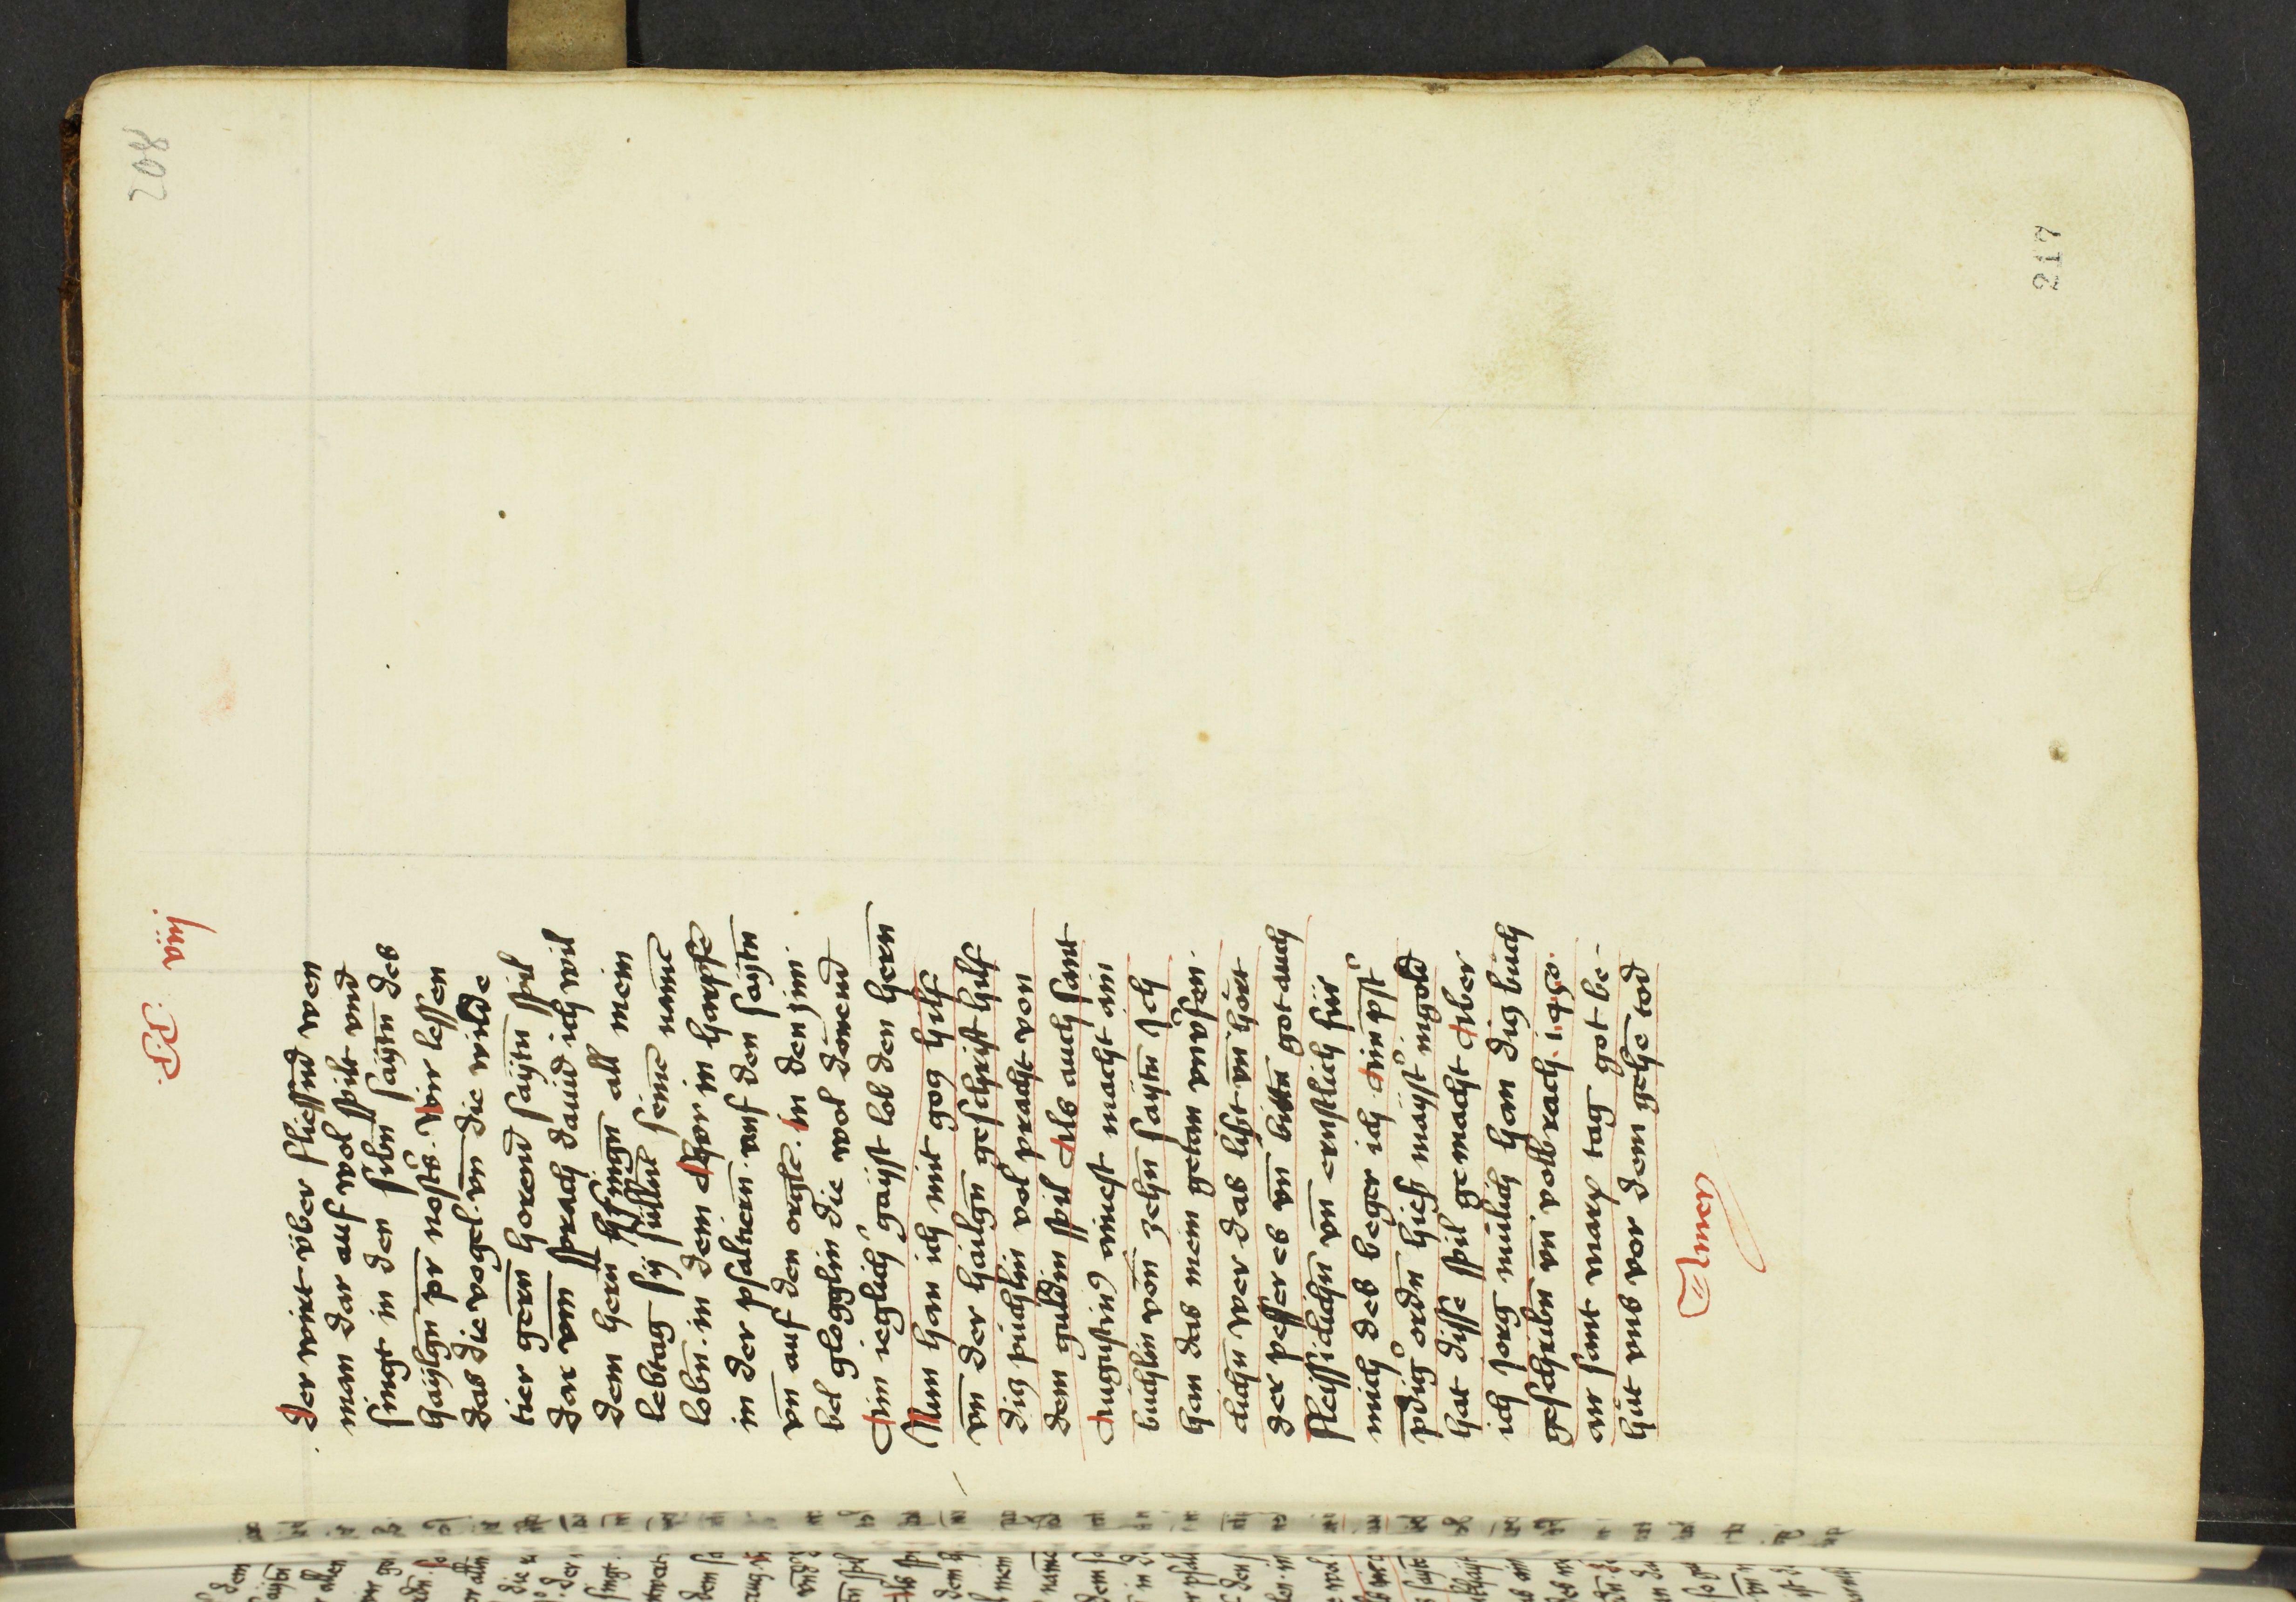 208
PP. viij
Der wirt v̈ber fliessend wen
man dar auf wol spilt vnd
singt in den sibn saytn des
haylgn pr nostᵉrs. Wir lessen
das die vogel. vn̄ die wilde
tier gern̄ horend saytn spil
Dar vm̄ sprach dauid ich wil
dem hern̄ singn all mein
lebtag ... seinē namē
lobn̄. in dem Chor in harpfe
in der psaltern̄. auf den saytn̄
vn̄ auf den orgle. in den zim
bel glogglin die wol dönend
Ain ieglich gayst lob den hern̄
Nun han ich mit gotz hilf
vn̄ der hailgn̄ geschrift hilf
diz püchlin vol pracht von
dem guldin spil Als auch sant
Augustin9 ainest macht ain
büchlin von zehn̄ saytn̄ Ich
han das mein getan ...
... wer das list vn̄ hört
der pesser es vn̄ bittn̄ got auch
fleissiclichn̄ vn̄ ernstlich für
mich des beger ich Ain pstᵉr
pdigᵉr ordn̄ hiess maystᵉr ingold
hat disse spil gemacht Aber
ich Jorg mülich han diz büch
geschribn̄ vn̄ volbrach. 1450.
an sant marx tag got be-
hüt vns vor dem gehē tod
Amen
217